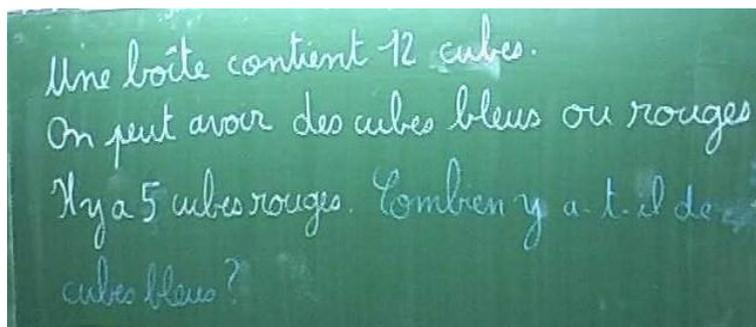 Une boîte contient 12 cubes.
On peut avoir des cubes bleus ou rouges
Il y a 5 cubes rouges. Combien y a-t-il de
cubes bleus?